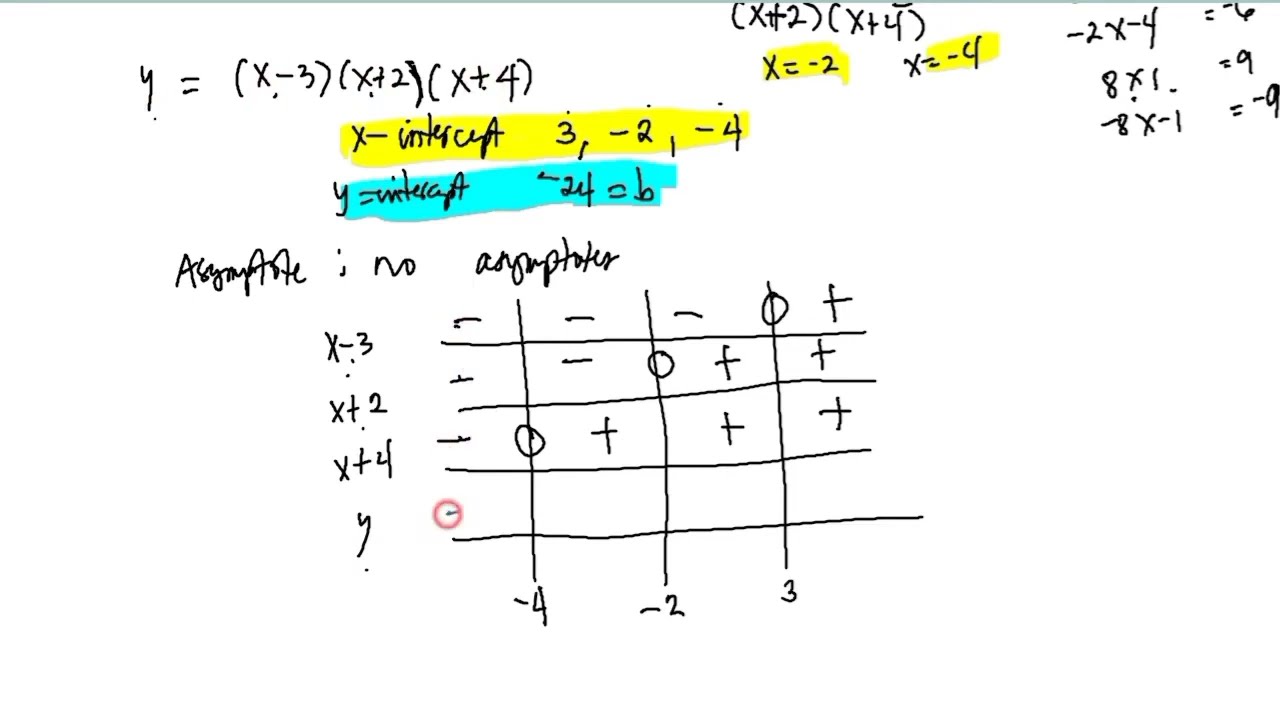 (x+2)(x+4)
x=-2 x=-4
-2x-4 =-6
8x1. =9
-8x-1 =-9
y = (x-3)(x+2)(x+4)
x-intercept 3, -2, -4
y=intercept -24=b
Asymptote : no asymptotes
x-3 - - - 0 +
x+2 - - 0 + +
x+4 - 0 + + +
y -
-4 -2 3